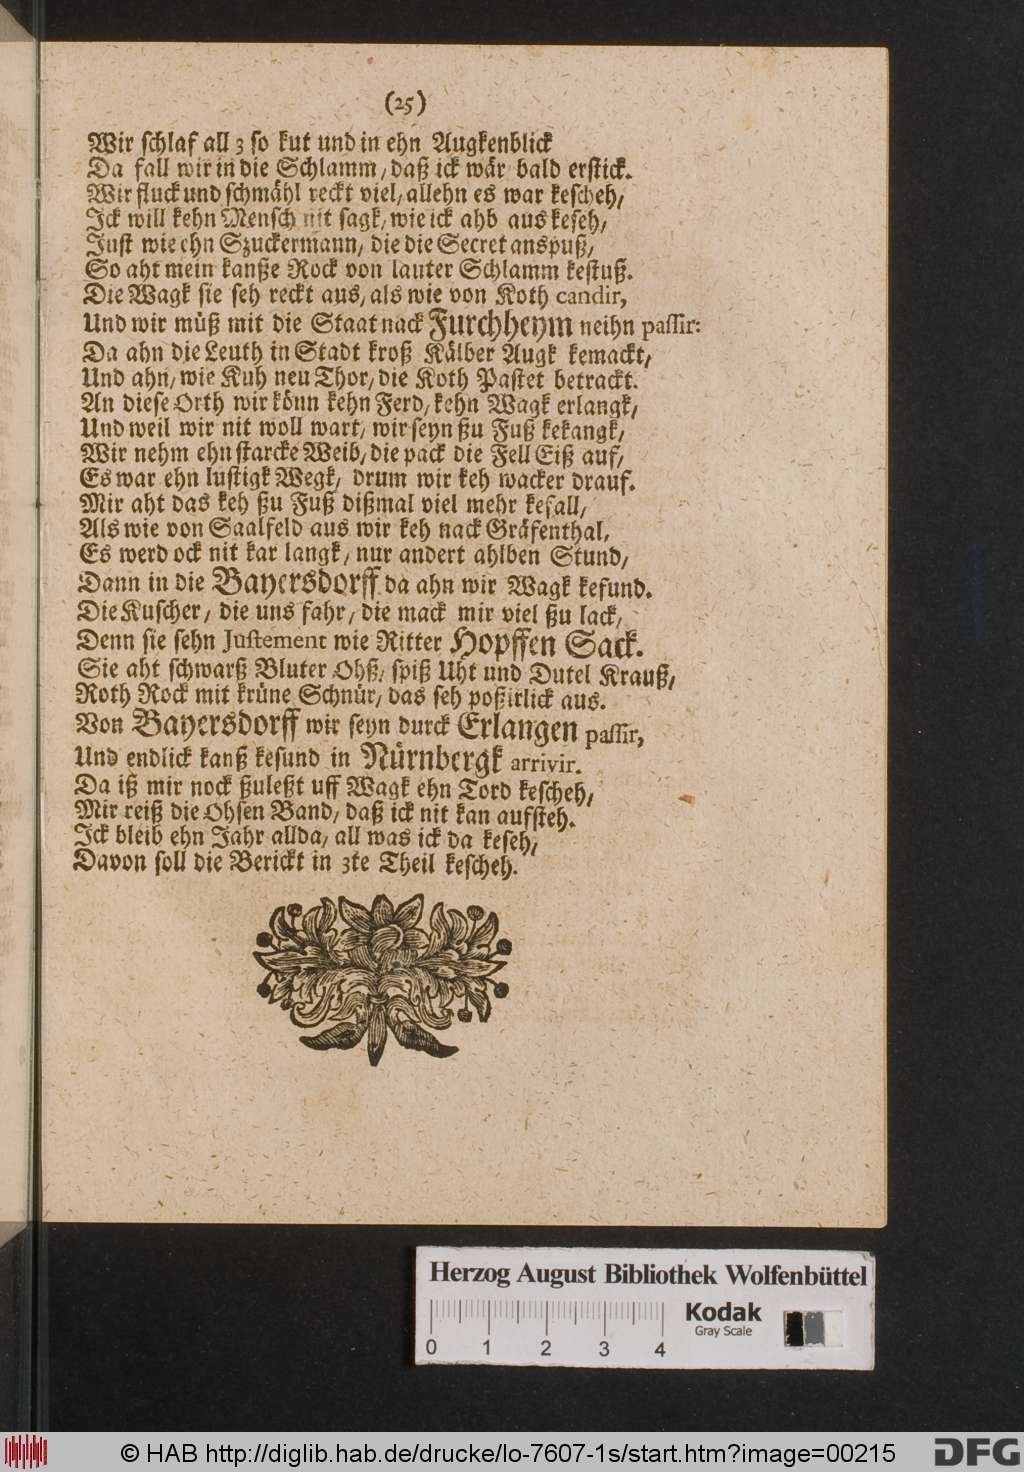 (25)
Wir schlaf all 3 so kut und in ehn Augkenblick
Da fall wir in die Schlamm, daß ick wär bald erstick.
Wir fluck und schmähl reckt viel, allehn es war kescheh,
Ick will kehn Mensch nit sagk, wie ick ahb aus keseh,
Just wie ehn Szuckermann, die die Secret anspuß,
So aht mein kanße Rock von lauter Schlamm kestuß.
Die Wagk sie seh reckt aus, als wie von Koth candir,
Und wir müß mit die Staat nack Furchheym neihn passir:
Da ahn die Leuth in Stadt kroß Kälber Augk kemackt,
Und ahn, wie Kuh neu Thor, die Koth Pastet betrackt.
An diese Orth wir könn kehn Ferd, kehn Wagk erlangk,
Und weil wir nit woll wart, wir seyn ßu Fuß kekangk,
Wir nehm ehn starcke Weib, die pack die Fell Eiß auf,
Es war ehn lustigk Wegk, drum wir keh wacker drauf.
Mir aht das keh ßu Fuß dißmal viel mehr kefall,
Als wie von Saalfeld aus wir keh nack Gräfenthal,
Es werd ock nit kar langk, nur andert ahlben Stund,
Dann in die Bayersdorff da ahn wir Wagk kefund.
Die Kuscher, die uns fahr, die mack mir viel ßu lack,
Denn sie sehn Justement wie Ritter Hopffen Sack.
Sie aht schwarß Bluter Ohß, spiß Uht und Dutel Krauß,
Roth Rock mit krüne Schnür, das seh poßirlick aus.
Von Bayersdorff wir seyn durck Erlangen passir,
Und endlick kanß kesund in Nürnbergk arrivir.
Da iß mir nock ßuleßt uff Wagk ehn Tord kescheh,
Mir reiß die Ohsen Band, daß ick nit kan aufsteh.
Ick bleib ehn Jahr allda, all was ick da keseh,
Davon soll die Berickt in 3te Theil kescheh.
Herzog August Bibliothek Wolfenbüttel
Kodak
Gray Scale
0 1 2 3 4
© HAB http://diglib.hab.de/drucke/lo-7607-1s/start.htm?image=00215
DFG